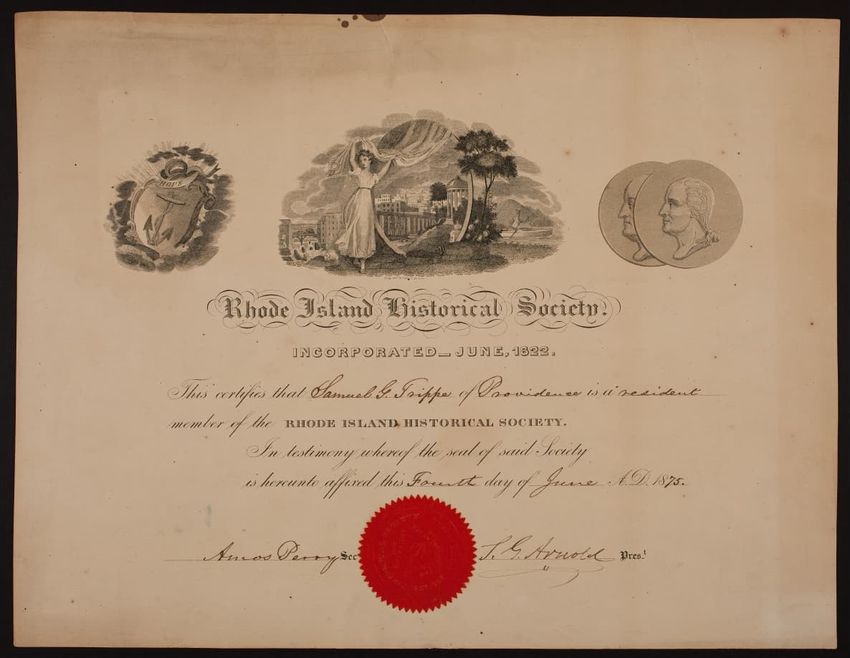 HOPE
Rhode Island Historical Society.
INCORPORATED_ JUNE, 1822.
This certifies that Samuel G. Trippe of Providence is a resident
member of the RHODE ISLAND HISTORICAL SOCIETY.
In testimony whereof the seal of said Society
is hereunto affixed this Fourth day of June A.D. 1875.
Amos Perry Sec
S. G. Arnold Pres.t